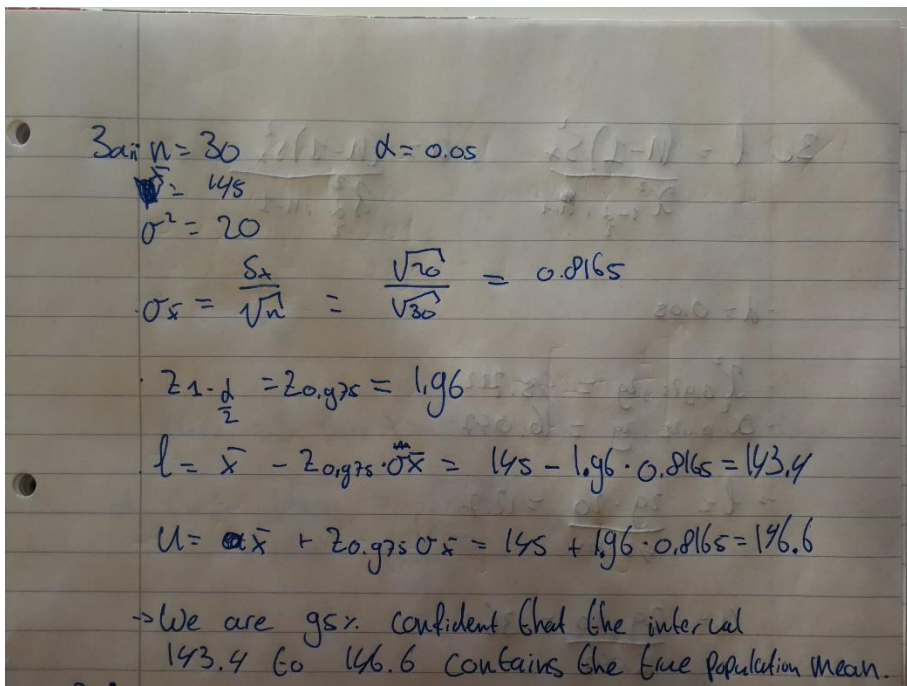 3ai n = 30 α = 0.05
x̄ = 145
σ² = 20
σx̄ = Sx/√n = √20/√30 = 0.8165
z1-α/2 = z0.975 = 1.96
l = x̄ - z0.975 · σx̄ = 145 - 1.96 · 0.8165 = 143.4
u = x̄ + z0.975 σx̄ = 145 + 1.96 · 0.8165 = 146.6
→ We are 95% confident that the interval
143.4 to 146.6 contains the true population mean.